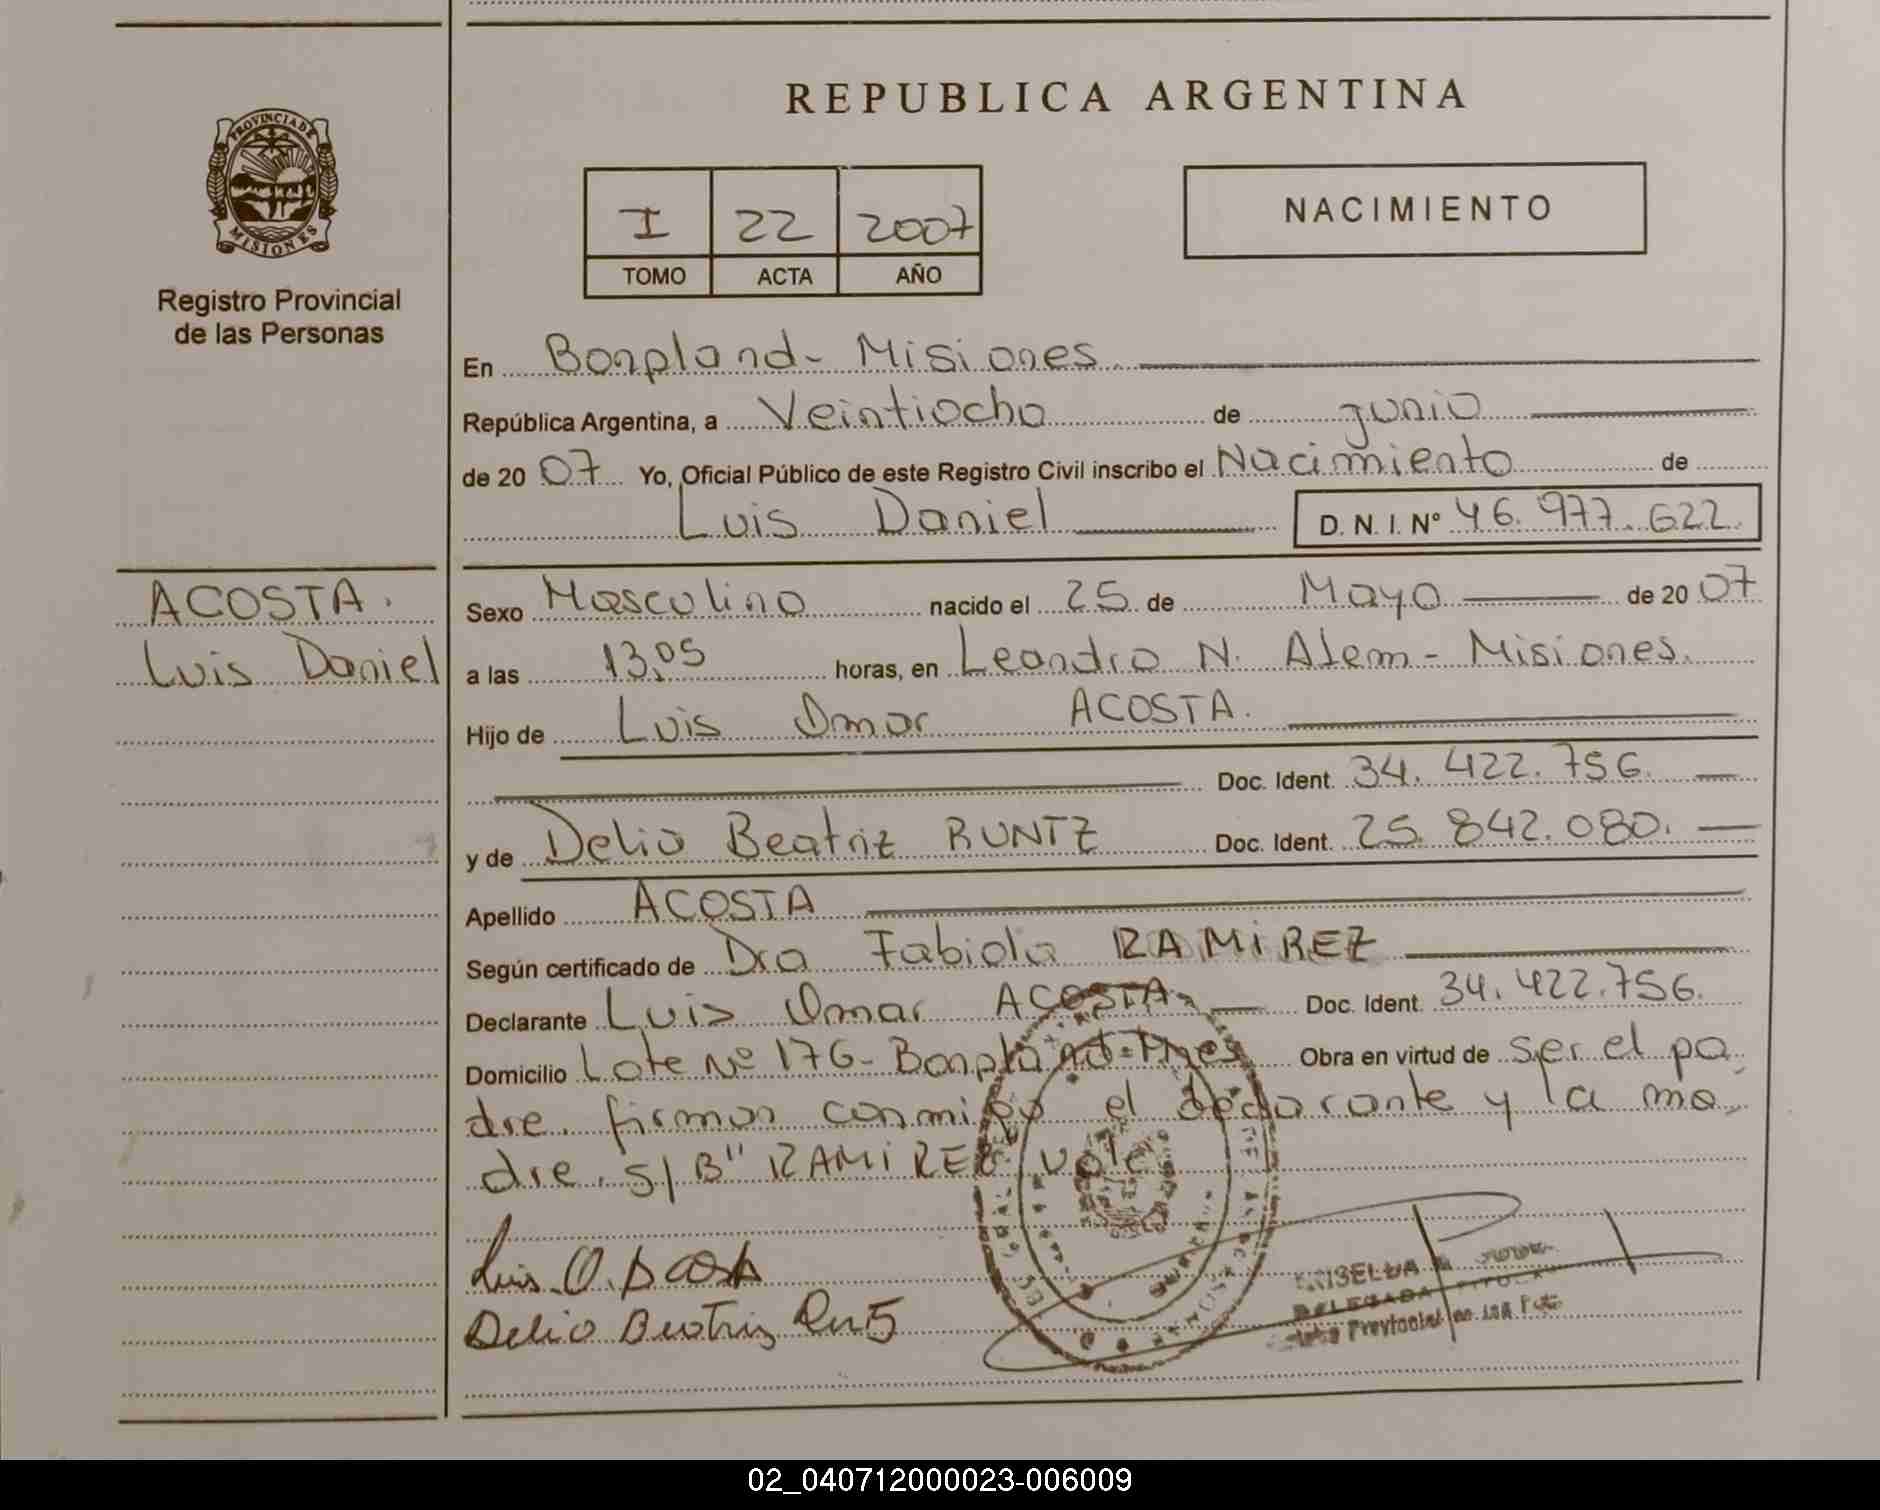 REPUBLICA ARGENTINA
PROVINCIA DE
MISIONES
Registro Provincial
de las Personas
I 22 2007
TOMO ACTA AÑO
NACIMIENTO
En Bonpland - Misiones
República Argentina, a Veintiocho de junio
de 2007 Yo, Oficial Público de este Registro Civil inscribo el Nacimiento de
Luis Daniel D. N. I. N° 46.977.622
ACOSTA.
Luis Daniel
Sexo Masculino nacido el 25 de Mayo de 2007
a las 13,05 horas, en Leandro N. Alem - Misiones.
Hijo de Luis Omar ACOSTA.
Doc. Ident. 34.422.756.
y de Delia Beatriz RUNTZ Doc. Ident. 25.842.080.
Apellido ACOSTA
Según certificado de Dra Fabiola RAMIREZ
Declarante Luis Omar ACOSTA Doc. Ident. 34.422.756.
Domicilio Lote Nº 176 - Bonpland - Mnes Obra en virtud de ser el pa
dre. firman conmigo el declarante y la ma
dre. s/B" RAMIREZ vale
Luis O. Acosta
Delia Beatriz
02_040712000023-006009